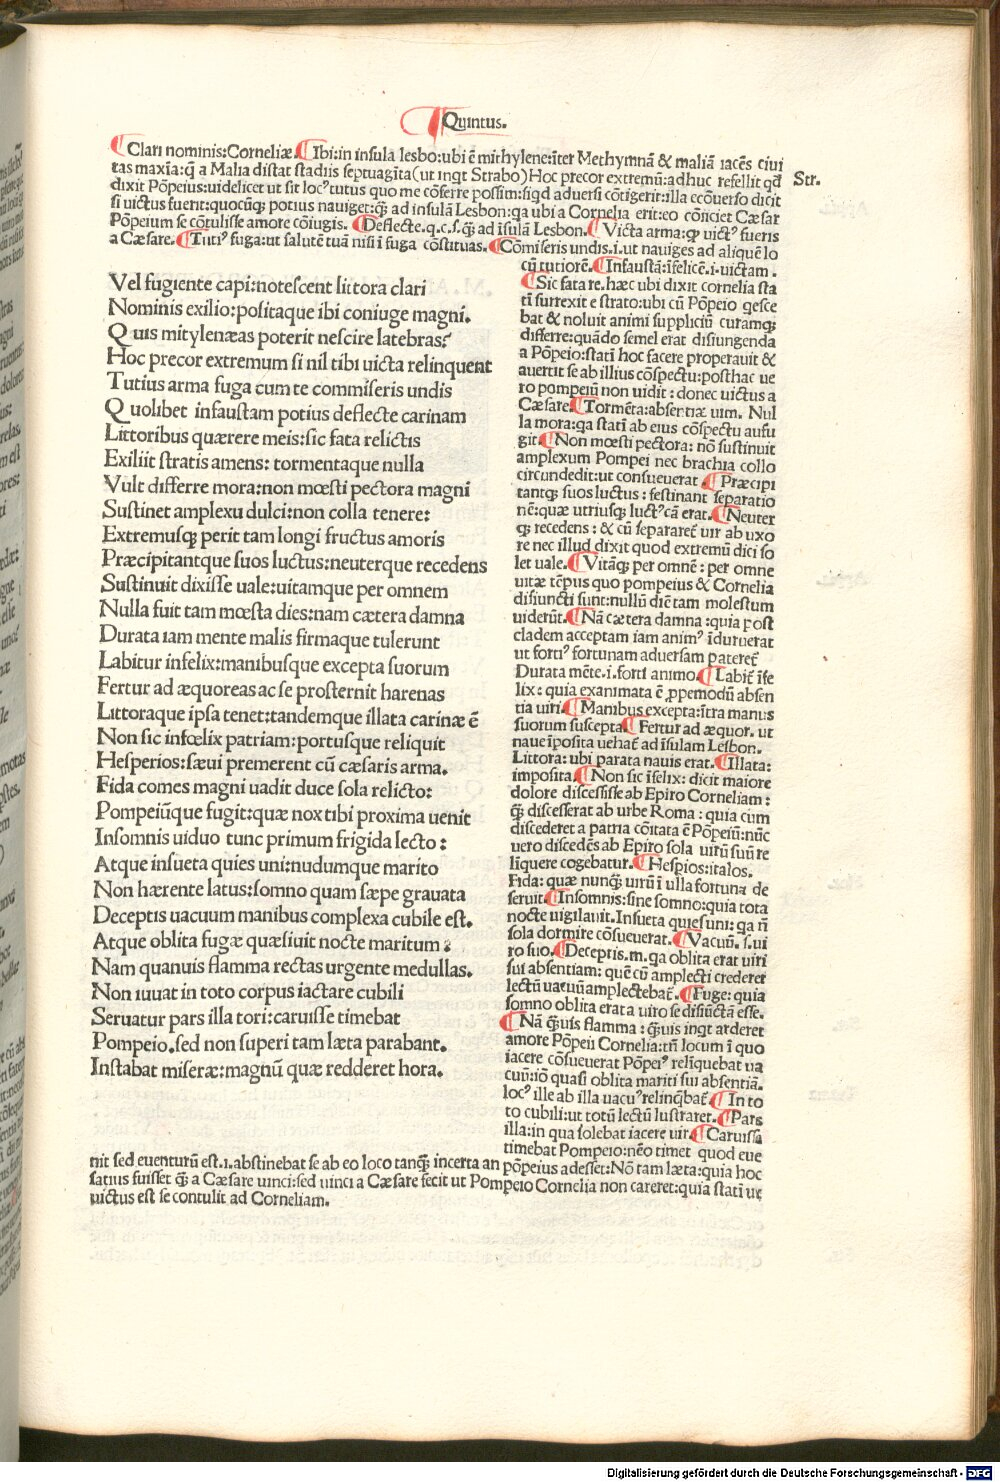 Quintus.
Clari nominis:Corneliæ. Ibi:in insula lesbo:ubi ē mithylene:īter Methymnā & maliā iacēs ciui
tas maxīa:q̄ a Malia distat stadiis septuagīta(ut inqt Strabo)Hoc precor extremū:adhuc refellit qđ
Str.
dixit Pōpeius:uidelicet ut sit locꝰ tutus quo me cōferre possim:siqd aduersi cōtigerit:illa ecōuerso dicit
si uictus fuerit:quocūqꝫ potius nauiget:q̄ꝫ ad insulā Lesbon:qa ubi a Cornelia erit:eo cōiiciet Cæsar
Pōpeium se cōtulisse amore cōiugis. Deflecte.q.c.f.q̄ꝫ ad īsulā Lesbon. Victa arma:qꝫ uictꝰ fueris
a Cæsare. Tutiꝰ fuga:ut salutē tuā nisi ī fuga cōstituas. Cōmiseris undis.i.ut nauiges ad aliquē lo
Vel fugiente capi:notescent littora clari
Nominis exilio:positaque ibi coniuge magni.
Quis mitylenæas poterit nescire latebras?
Hoc precor extremum si nil tibi uicta relinquent
Tutius arma fuga cum te commiseris undis
Quolibet infaustam potius deflecte carinam
Littoribus quærere meis:sic fata relictis
Exiliit stratis amens: tormentaque nulla
Vult differre mora:non mœsti pectora magni
Sustinet amplexu dulci:non colla tenere:
Extremusqꝫ perit tam longi fructus amoris
Præcipitantque suos luctus:neuterque recedens
Sustinuit dixisse uale:uitamque per omnem
Nulla fuit tam mœsta dies:nam cætera damna
Durata iam mente malis firmaque tulerunt
Labitur infelix:manibusque excepta suorum
Fertur ad æquoreas ac se prosternit harenas
Littoraque ipsa tenet:tandemque illata carinæ ē
Non sic infœlix patriam:portusque reliquit
Hesperios:sæui premerent cū cæsaris arma.
Fida comes magni uadit duce sola relicto:
Pompeiūque fugit:quæ nox tibi proxima uenit
Insomnis uiduo tunc primum frigida lecto:
Atque insueta quies uni:nudumque marito
Non hærente latus:somno quam sæpe grauata
Deceptis uacuum manibus complexa cubile est.
Atque oblita fugæ quæsiuit nocte maritum:
Nam quanuis flamma rectas urgente medullas.
Non iuuat in toto corpus iactare cubili
Seruatur pars illa tori:caruisse timebat
Pompeio.sed non superi tam læta parabant.
Instabat miseræ:magnū quæ redderet hora.
cū tutiorē. Infaustā:īfelicē.i.uictam.
Sic fata re.hæc ubi dixit cornelia sta
tī surrexit e strato:ubi cū Pōpeio qesce
bat & noluit animi suppliciū curamqꝫ
differre:quādo semel erat disiungenda
a Pōpeio:statī hoc facere properauit &
auertit se ab illius cōspectu:posthac ue
ro pompeiū non uidit: donec uictus a
Cæsare. Tormēta:absentiæ uim. Nul
la mora:qa statī ab eius cōspectu aufu
git. Non mœsti pectora: nō sustinuit
amplexum Pompei nec brachia collo
circundedit:ut consueuerat Præcipi
tantqꝫ suos luctus: festinant separatio
nē:quæ utriusqꝫ luctꝰ cā erat. Neuter
qꝫ recedens: & cū separaret̄ uir ab uxo
re nec illud dixit quod extremū dici so
let uale. Vitāqꝫ per omnē: per omne
uitæ tēpus quo pompeius & Cornelia
disiuncti sunt:nullū diē tam molestum
uiderūt. Nā cætera damna:quia post
cladem acceptam iam animꝰ īduruerat
ut fortiꝰ fortunam aduersam pateret̄
Durata mēte.i.forti animo. Labit̄ īfe
lix: quia exanimata ē ꝓpemodū absen
tia uiri. Manibus excepta:ītra manus
suorum suscepta Fertur ad æquor.ut
naue īposita uehat̄ ad īsulam Lesbon.
Littora:ubi parata nauis erat. Illata:
imposita. Non sic īfelix:dicit maiore
dolore discessisse ab Epiro Corneliam:
q̄ꝫ discesserat ab urbe Roma: quia cum
discederet a patria cōitata ē Pōpeiū:nūc
uero discedēs ab Epiro sola uirū suū re
liquere cogebatur. Hesṗios:italos.
Fida: quæ nunq̄ꝫ uirū ī ulla fortuna de
seruit. Insomnis:sine somno:quia tota
nocte uigilauit.Insueta quies uni:qa n̄
sola dormire cōsueuerat. Vacuū.s.ui
ro suo. Deceptis.m.qa oblita erat uiri
sui absentiam:quē cū amplecti crederet
lectū uacuū amplectebat̄. Fuge:quia
somno oblita erat a uiro se disiūctā esse.
Nā q̄ꝫuis flamma: q̄ꝫuis inqt arderet
amore Pōpeii Cornelia:tn̄ locum ī quo
iacere cōsueuerat Pōpeiꝰ relīquebat ua
cuū:iō quasi oblita mariti sui absentiā.
locꝰ ille ab illa uacuꝰ relinq̄bat̄. In to
to cubili:ut totū lectū lustraret. Pars
illa:in qua solebat iacere uir. Caruissæ
timebat Pompeio:nēo timet quod eue
nit sed euenturū est.i.abstinebat se ab eo loco tanq̄ꝫ incerta an pōpeius adesset:Nō tam læta:quia hoc
satius fuisset q̄ꝫ a Cæsare uinci:sed uinci a Cæsare fecit ut Pompeio Cornelia non careret:quia statī ut
uictus est se contulit ad Corneliam.
Digitalisierung gefördert durch die Deutsche Forschungsgemeinschaft - DFG